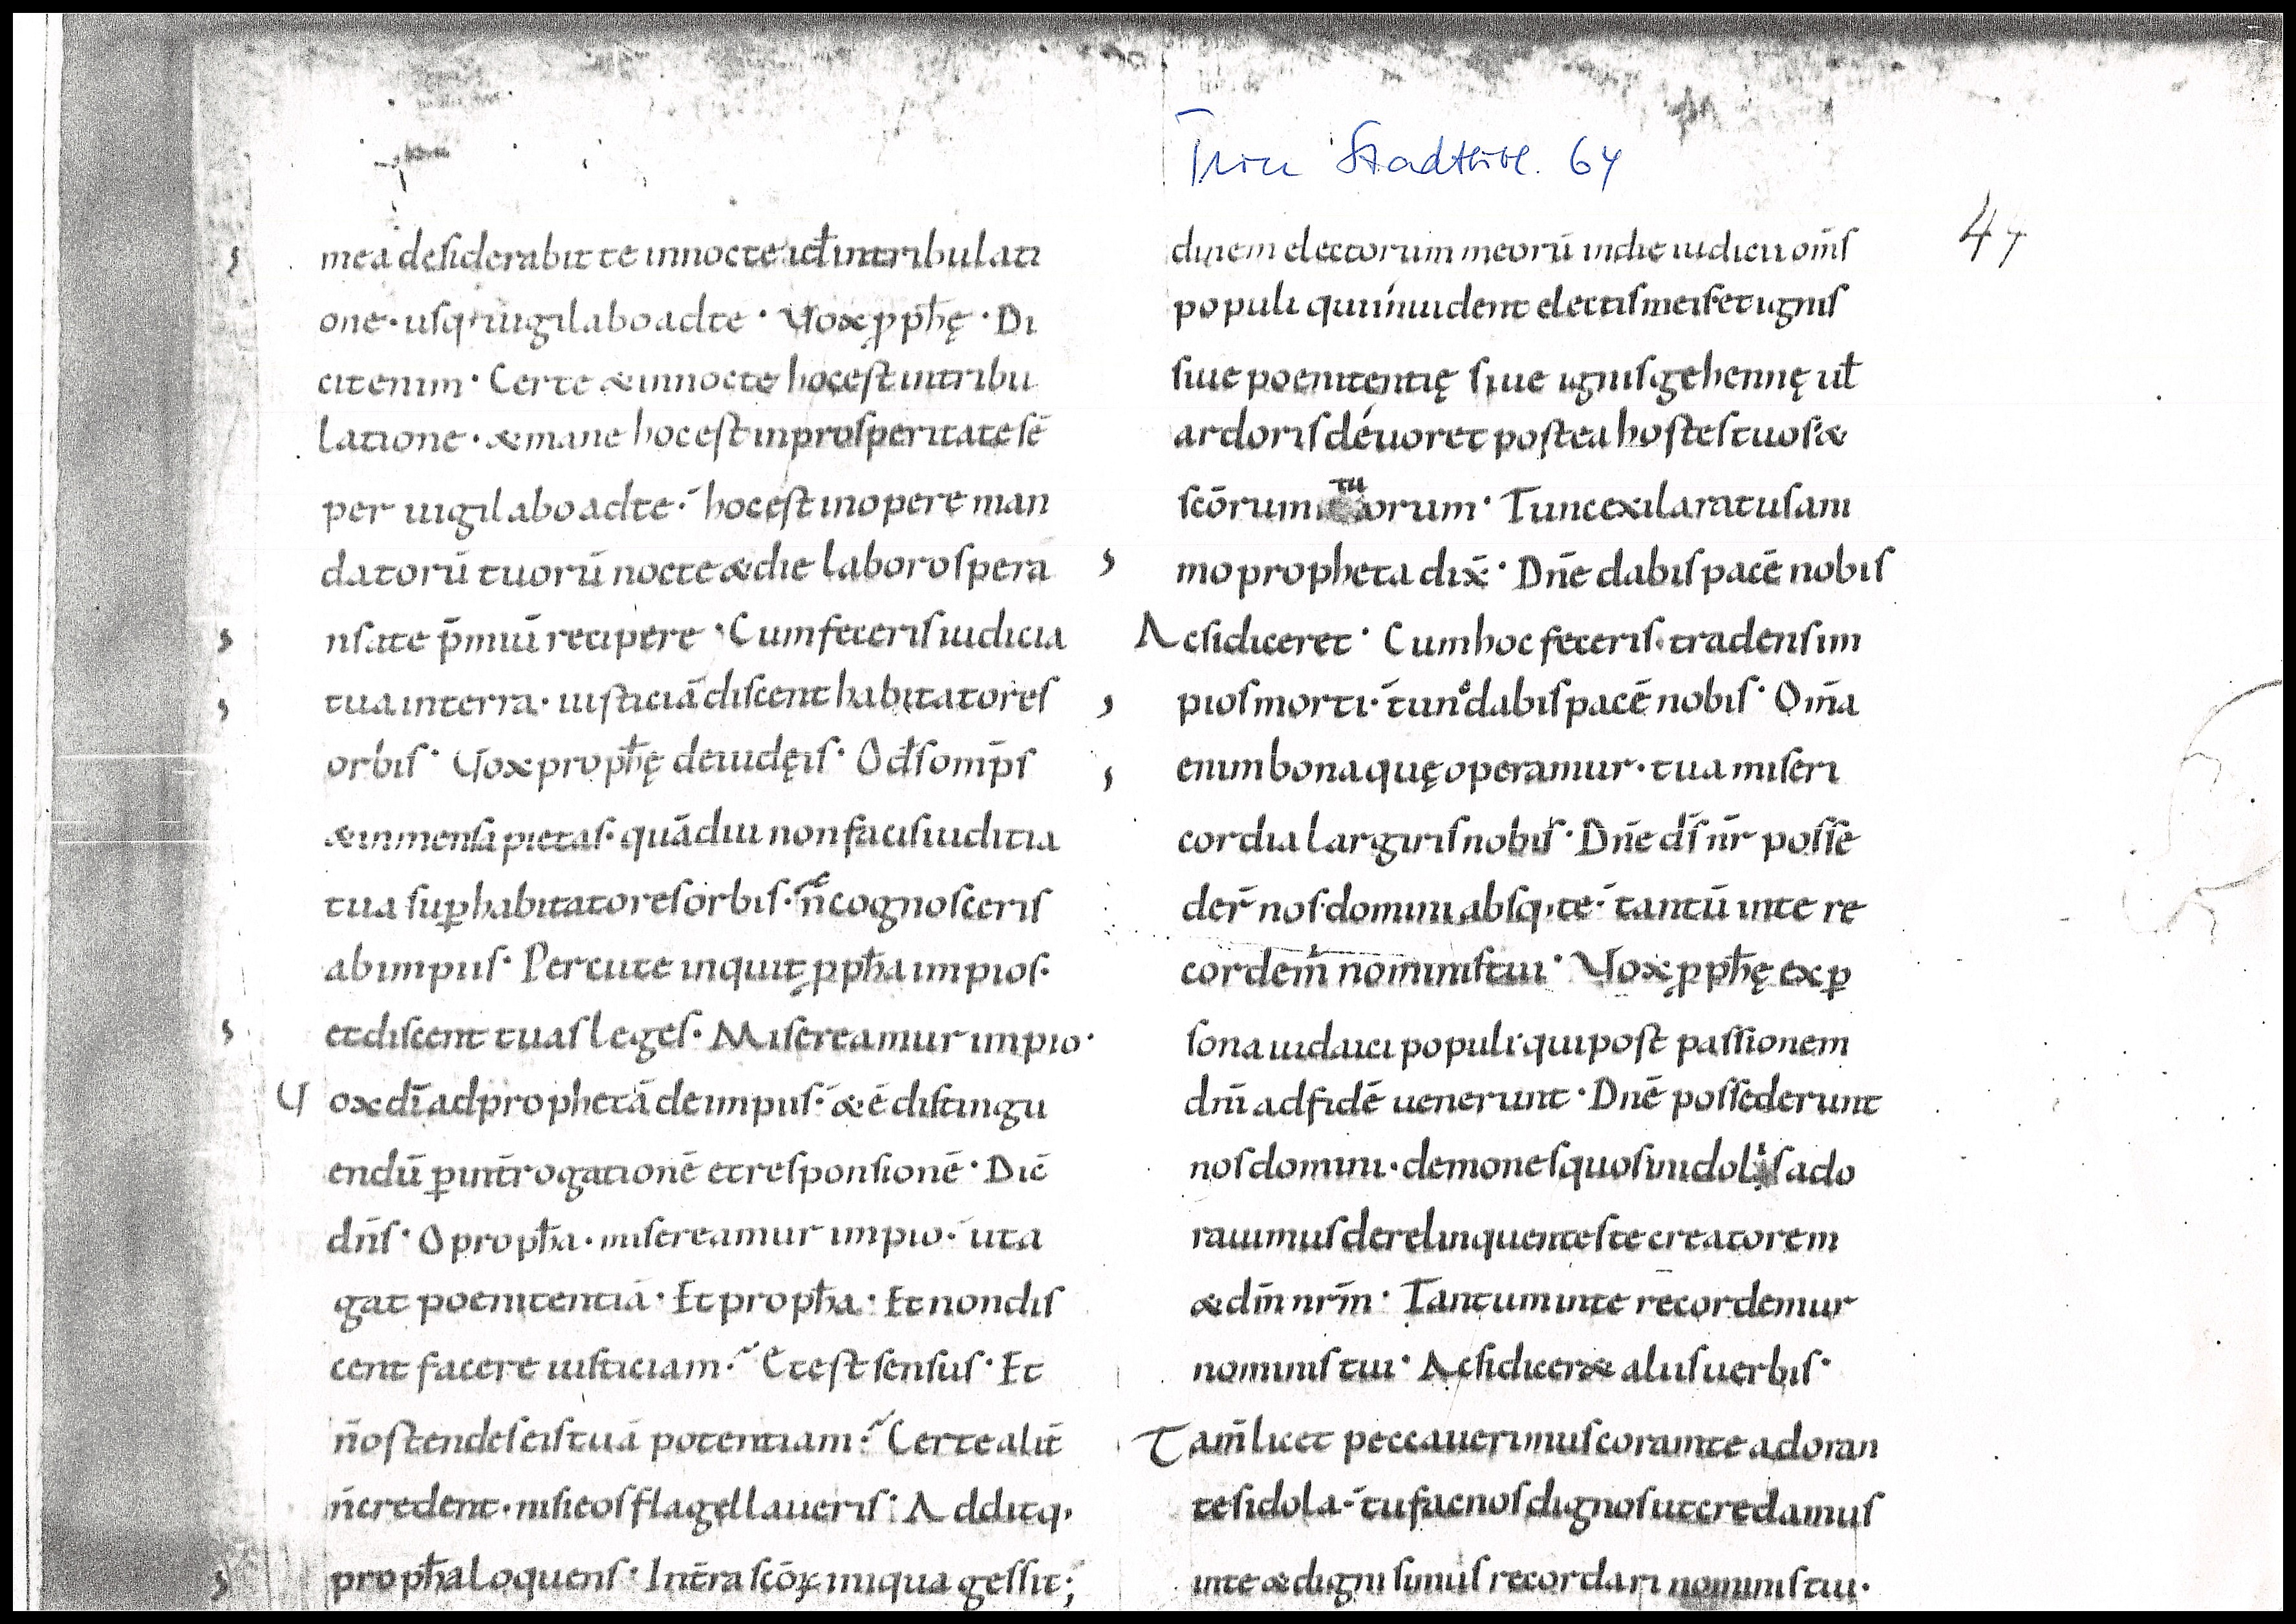 Trier Stadtbibl. 64
47
mea desiderabit te innocte id ÷ intribulati
one · usq; uigilabo adte · Vox ꝓph̄ę · Di
cit enim · Certe & innocte hoc est intribu
latione · & mane hoc est inprosperitate sē
per uigilabo adte · hoc est inopere man
datorū tuorū nocte & die laboro spera
ns a te p̄miū recipere · Cum feceris iudicia
tua interra · iusticiā discent habitatores
orbis · Vox proph̄ę de iudęis · O ds̄ omīps
& inmensa pietas · quādiu non facis iuditia
tua suꝑ habitatores orbis · n̄ cognosceris
ab impiis · Percute inquit ꝓph̄a impios ·
et discent tuas leges · Misereamur impio ·
Vox dī ad prophetā de impiis · & ē distingu
endū ꝑ int̄rogationē et responsionē · Dic̄
dn̄s · O proph̄a · misereamur impio · ut a
gat poenitentiā · Et proph̄a · Et non dis
cent facere iusticiam · Et est sensus · Et
n̄ ostendes eis tuā potentiam · Certe alit̄
n̄ credent · nisi eos flagellaueris · Addit q;
proph̄a loquens · Int̄ra scōꝝ iniqua gessit ;
dinem electorum meorū indie iudicii om̄s
populi qui inuident electis meis et ignis
siue poenitentię siue ignis gehennę ul̄
ardoris deuoret postea hostes tuos &
scōrum tuorum · Tunc exilaratus ani
mo propheta dix̄ · Dn̄e dabis pacē nobis
Ac si diceret · Cum hoc feceris · tradens im
pios morti · tunc dabis pacē nobis · Om̄a
enim bona quę operamur · tua miseri
cordia largiris nobis · Dn̄e ds̄ nr̄ posse
der̄ nos domini absq; te · tantū inte re
cordem̄ nominis tui · Vox ꝓph̄ę ex ꝑ
sona iudaici populi qui post passionem
dn̄i ad fidē uenerunt · Dn̄ē possederunt
nos domini · demones quos inidolis ado
rauimus derelinquentes te creatorem
& dn̄m nr̄m · Tantum inte recordemur
nominis tui · Ac si dicer& aliis uerbis ·
Tam̄ licet peccauerimus coram te adoran
tes idola · tu fac nos dignos ut credamus
inte & digni simus recordari nominis tui ·